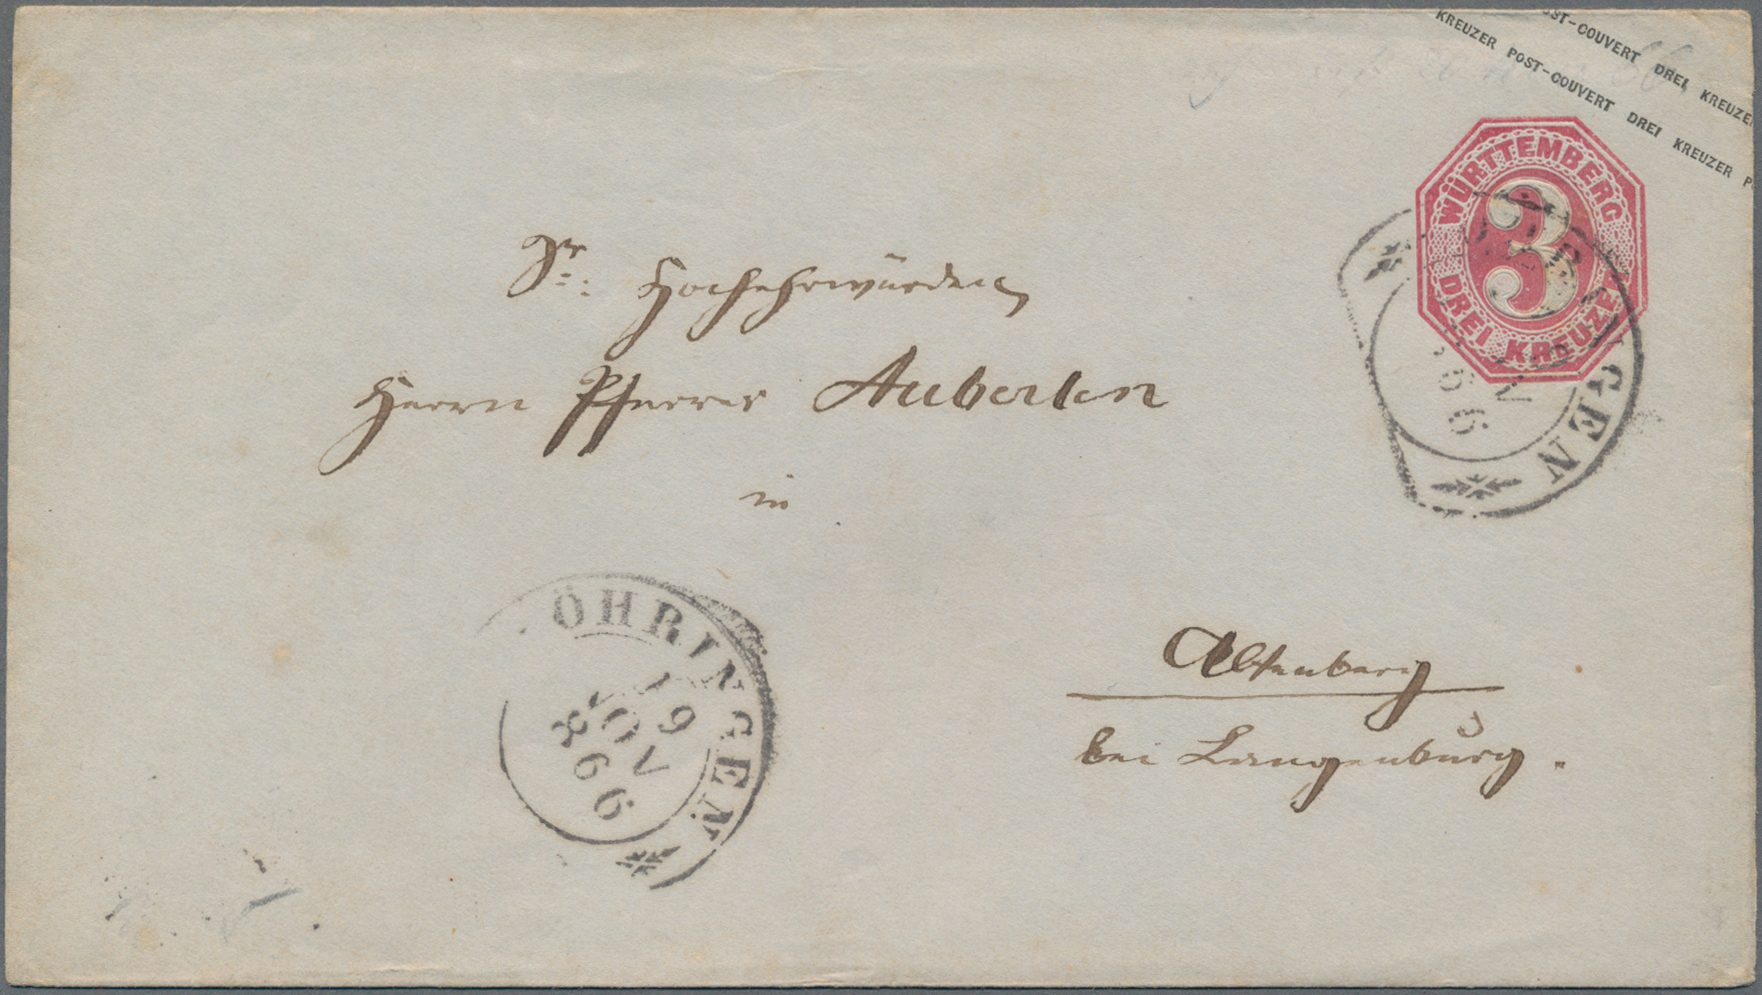 POST-COUVERT DREI KREUZER
KREUZER POST-COUVERT DREI KREUZER P
WÜRTTEMBERG
3
DREI KREUZER
ÖHRINGEN
19
NOV
866
Sr: Hochehrwürden
Herrn Pfarrer Auberlen
in
ÖHRINGEN
19
NOV
866
bei Langenburg.